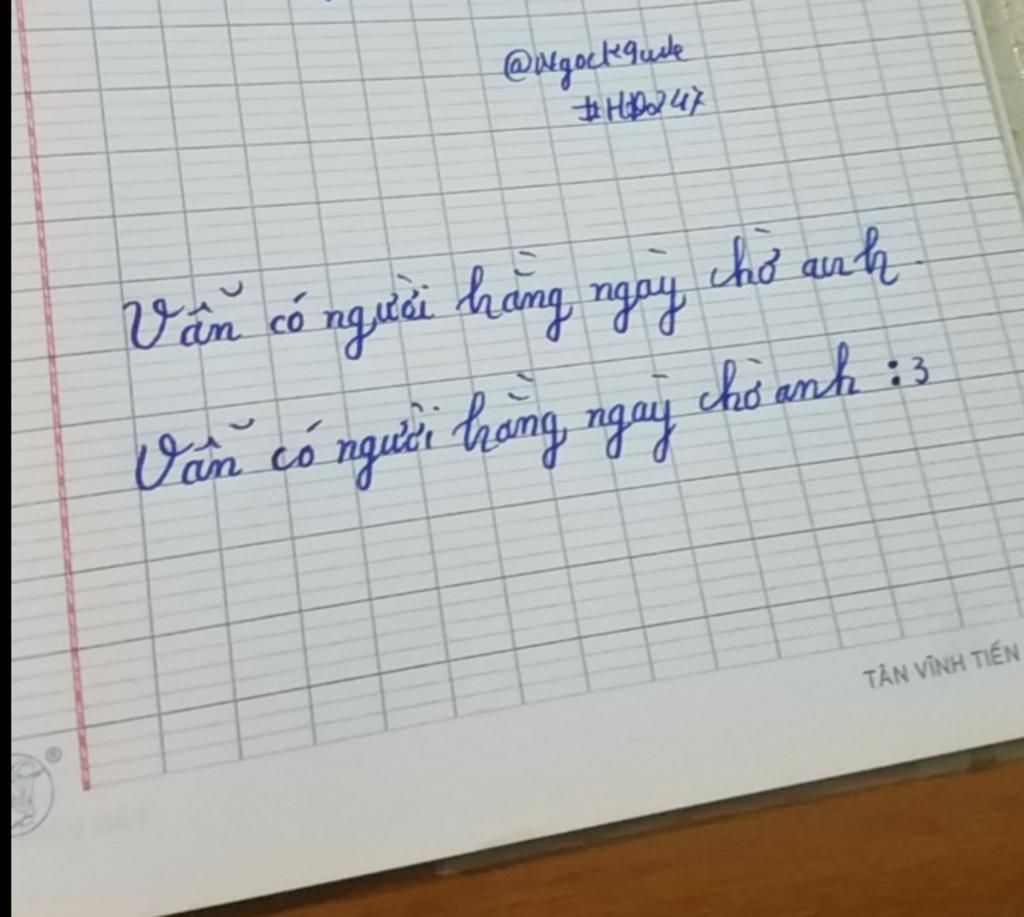 #HD247
Vẫn có người hằng ngày chờ anh
Vẫn có người hằng ngày chờ anh :3
TÂN VĨNH TIẾN
®